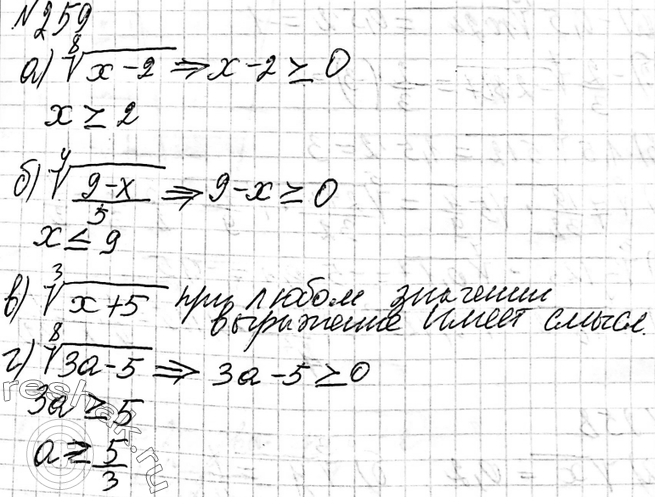 №259
а) ⁸√(x-2) ⇒ x-2 ≥ 0
x ≥ 2
б) ⁴√((9-x)/5) ⇒ 9-x ≥ 0
x ≤ 9
в) ³√(x+5) при любом значении
выражение имеет смысл.
г) ⁸√(3a-5) ⇒ 3a-5 ≥ 0
3a ≥ 5
a ≥ 5/3
reshak.ru